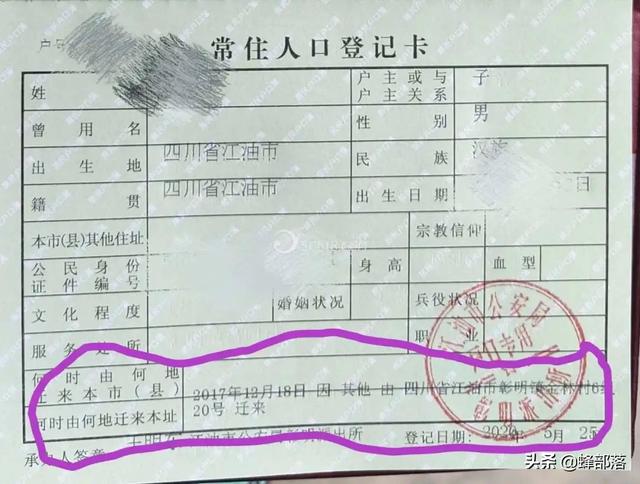 户号
常住人口登记卡
姓
户主或与户主关系 子
曾用名
性别 男
出生地 四川省江油市
民族 汉族
籍贯 四川省江油市
出生日期 日
本市(县)其他住址
宗教信仰
公民身份证件编号
身高
血型
文化程度
婚姻状况
兵役状况
服务处所
职业
何时由何地迁来本市(县)
何时由何地迁来本址 2017年12月18日 因 其他 由 四川省江油市彰明镇金林村6组
20号 迁来
承办人签章 江油市公安局彰明派出所 登记日期: 2020年 5月 25
江油市公安局
户口专用
彰明派出所
头条 @蜂部落